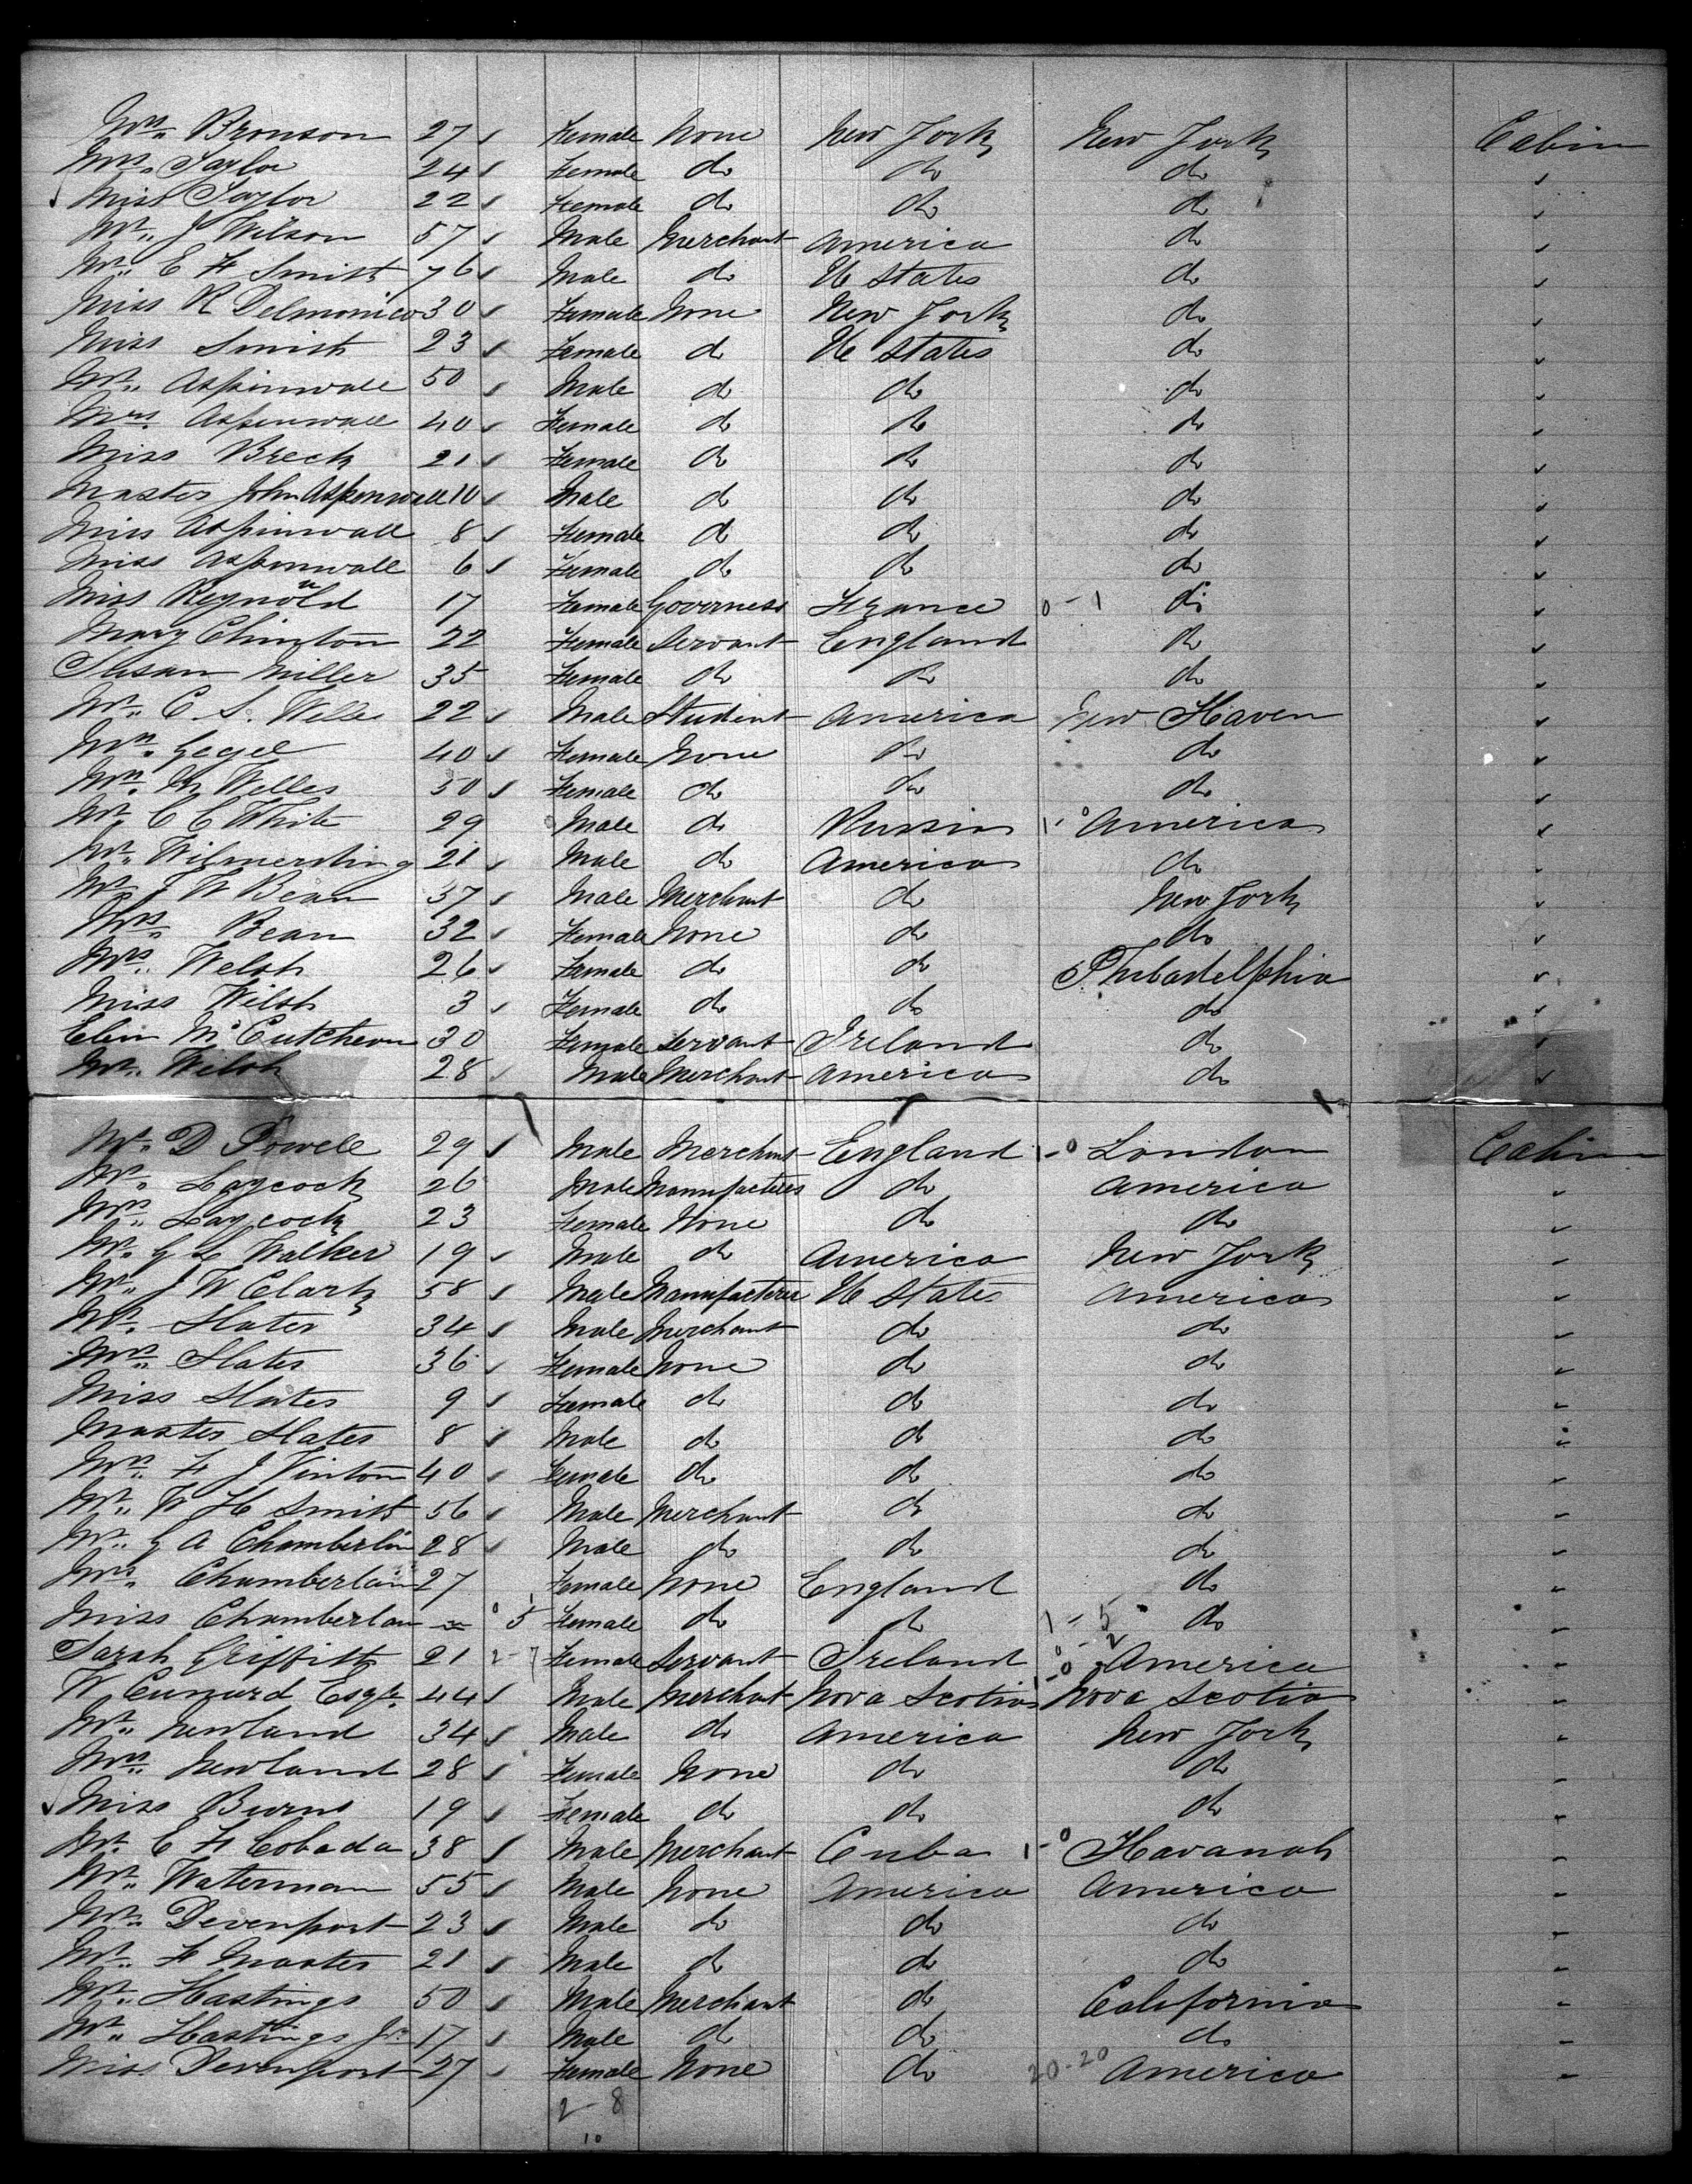 Mrs. Bronson 27 Female None New York New York Cabin
Mrs. Taylor 24 Female do do do "
Miss Taylor 22 Female do do do "
Mr. J Wilson 57 Male Merchant America do "
Mr. E H Smith 76 Male do U States do "
Miss R Delmonico 30 Female None New York do "
Miss Smith 23 Female do U States do "
Mr. Aspinwall 50 Male do do do "
Mrs. Aspenwall 40 Female do do do "
Miss Breck 21 Female do do do "
Master John Aspenwall 10 Male do do do "
Miss Aspinwall 8 Female do do do "
Miss Aspenwall 6 Female do do do "
Miss Reynold 17 Female Governess France 0-1 do "
Mary Clinton 22 Female Servant England do "
Susan Miller 35 Female do do do "
Mr. C S. Welles 22 Male Student America New Haven "
Mrs. 40 Female None do do "
Mrs. Welles 30 Female do do do "
Mr. C C White 29 Male do Russia 1-0 America "
Mr. Wilmerding 21 Male do America do "
Mr. J W Bean 37 Male Merchant do New York "
Mrs. Bean 32 Female None do do "
Mrs. Welsh 26 Female do do Philadelphia "
Miss Wilsh 3 Female do do do "
Elen McCutcheon 30 Female Servant Ireland do "
Mr. Wilsh 28 Male Merchant America do "
Mr. D Powell 29 Male Merchant England 1-0 London Cabin
Mr. Laycock 26 Male Manufacturer do America "
Mrs. Laycock 23 Female None do do "
Mr. G L Walker 19 Male do America New York "
Mr. J W Clark 58 Male Manufacturer U States America "
Mr. Slater 34 Male Merchant do do "
Mrs. Slater 36 Female None do do "
Miss Slater 9 Female do do do "
Master Slater 8 Male do do do "
Mrs. F J Vinton 40 Female do do do "
Mr. W H Smith 56 Male Merchant do do "
Mr. G A Chamberlin 28 Male do do do "
Mrs. Chamberlain 27 Female None England do "
Miss Chamberlan 5 Female do do 1-5 do "
Sarah Griffith 21 2-7 Female Servant Ireland 0-2 America "
W Cunard Esqr. 44 Male Merchant Nova Scotia 1-0 Nova Scotia "
Mr. Newland 34 Male do America New York "
Mrs. Newland 28 Female None do do "
Miss Burns 19 Female do do do "
Mr. E F Cobada 38 Male Merchant Cuba 1-0 Havanah "
Mr. Waterman 55 Male None America America "
Mr. Devenport 23 Male do do do "
Mr. F Master 21 Male do do do "
Mr. Hastings 50 Male Merchant do California "
Mr. Hastings Jr. 17 Male do do do "
Miss Devenport 27 Female None do 20-20 America "
2-8
10